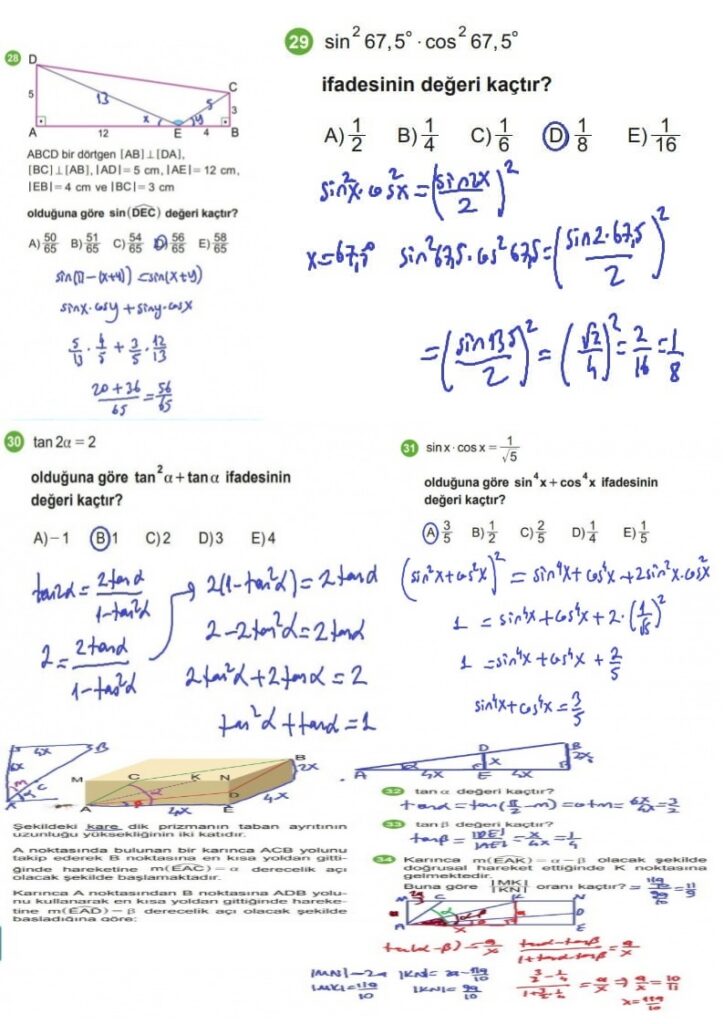 28
D
C
13
5
5
3
x
y
A
12
E
4
B
ABCD bir dörtgen [AB]⊥[DA],
[BC]⊥[AB], |AD|= 5 cm, |AE|= 12 cm,
|EB|= 4 cm ve |BC|= 3 cm
olduğuna göre sin(DEC) değeri kaçtır?
A) 50/65 B) 51/65 C) 54/65 D) 56/65 E) 58/65
sin(π-(x+y)) = sin(x+y)
sinx·cosy + siny·cosx
5/13 · 4/5 + 3/5 · 12/13
20+36/65 = 56/65
29 sin² 67,5° · cos² 67,5°
ifadesinin değeri kaçtır?
A) 1/2 B) 1/4 C) 1/6 D) 1/8 E) 1/16
sin²x·cos²x = (sin2x/2)²
x=67,5° sin²67,5·cos²67,5=(sin2·67,5/2)²
=(sin135/2)²=(√2/4)²=2/16=1/8
30 tan 2α = 2
olduğuna göre tan²α + tan α ifadesinin
değeri kaçtır?
A) – 1 B) 1 C) 2 D) 3 E) 4
tan2α = 2tanα/1-tan²α
2 = 2tanα/1-tan²α
2(1-tan²α) = 2tanα
2-2tan²α = 2tanα
2tan²α+2tanα = 2
tan²α+tanα = 1
31 sin x · cos x = 1/√5
olduğuna göre sin⁴x + cos⁴x ifadesinin
değeri kaçtır?
A) 3/5 B) 1/2 C) 2/5 D) 1/4 E) 1/5
(sin²x+cos²x)² = sin⁴x+cos⁴x+2sin²x·cos²x
1 = sin⁴x+cos⁴x+2·(1/√5)²
1 = sin⁴x+cos⁴x+2/5
sin⁴x+cos⁴x=3/5
4x
B
6x
m
C
α
A
M
C
K
N
B
2x
α
β
D
A
4x
E
4x
D
B
x
2x
A
4x
E
4x
Şekildeki kare dik prizmanın taban ayrıtının
uzunluğu yüksekliğinin iki katıdır.
A noktasında bulunan bir karınca ACB yolunu
takip ederek B noktasına en kısa yoldan gitti-
ğinde hareketine m(EAC) = α derecelik açı
olacak şekilde başlamaktadır.
Karınca A noktasından B noktasına ADB yolu-
nu kullanarak en kısa yoldan gittiğinde hareke-
tine m(EAD) = β derecelik açı olacak şekilde
başladığına göre;
32 tan α değeri kaçtır?
tanα = tan(π/2-m) = cotm = 6x/4x = 3/2
33 tan β değeri kaçtır?
tanβ = |DE|/|AE| = x/4x = 1/4
34 Karınca m(EAK) = α – β olacak şekilde
doğrusal hareket ettiğinde K noktasına
gelmektedir.
Buna göre |MK|/|KN| oranı kaçtır? = 11a/10 / 9a/10 = 11/9
M
C
K
N
D
E
a
x
tan(α-β) = a/x
tanα-tanβ/1+tanα·tanβ = a/x
3/2-1/4/1+3/2·1/4 = a/x ⇒ a/x = 10/11
x = 11a/10
|MN|=2a |KN|= 2a-11a/10
|MK|=11a/10 |KN|= 9a/10